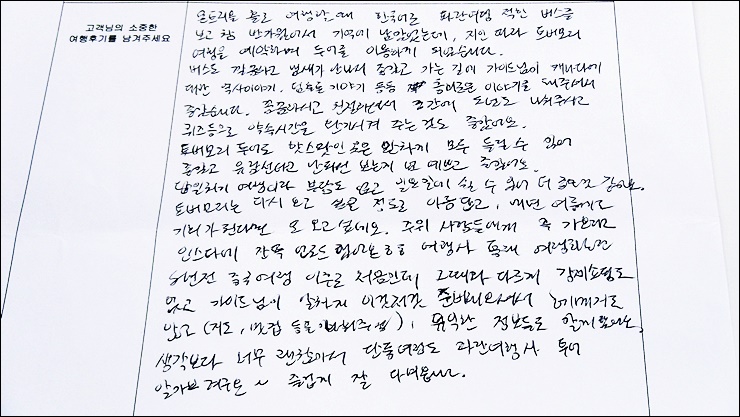 고객님의 소중한
여행후기를 남겨주세요
몬트리올 놀고 여행할때 한국어로 파란여행 적힌 버스를
보고 참 반가워서 기억에 남았었는데, 지인 따라 토버모리
여행을 예약하며 투어를 이용하게 되었습니다.
버스도 깨끗하고 냄새가 안나서 좋았고 가는 길에 가이드님이 캐나다에
대한 역사이야기, 단풍국 이야기 등등 흥미로운 이야기를 해주셔서
좋았습니다. 꼼꼼하시고 친절하셔서 중간에 도넛도 나눠주시고
퀴즈등으로 약속시간을 반기시켜 주는것도 좋았어요.
토버모리 투어로 핫스팟인 곳은 알차게 모두 둘러볼 수 있어
좋았고 유람선타고 난파선 보는게 넘 예쁘고 좋았어요.
당일치기 여행이라 부담도 없고 일요일에 쉴 수 있어 더 좋은것 같아요.
토버모리는 다시 오고 싶을 정도로 아름답고, 내년 여름에도
기회가 된다면 또 오고싶네요. 주위 사람들에게 꼭 가보라고
인스타에 잔뜩 업로드 했어요 ㅎㅎ 여행사 통해 여행하는건
5년전 중국여행 이후로 처음인데 그때와 다르게 강제쇼핑도
없고 가이드님이 알차게 이것저것 준비해오셔서
있고 (지도, 맛집 등을 알려주심), 유익한 정보들도 알게됐어요.
생각보다 너무 괜찮아서 단풍여행도 파란여행사 투어
알아보려구요~ 즐겁게 잘 다녀옵니다.